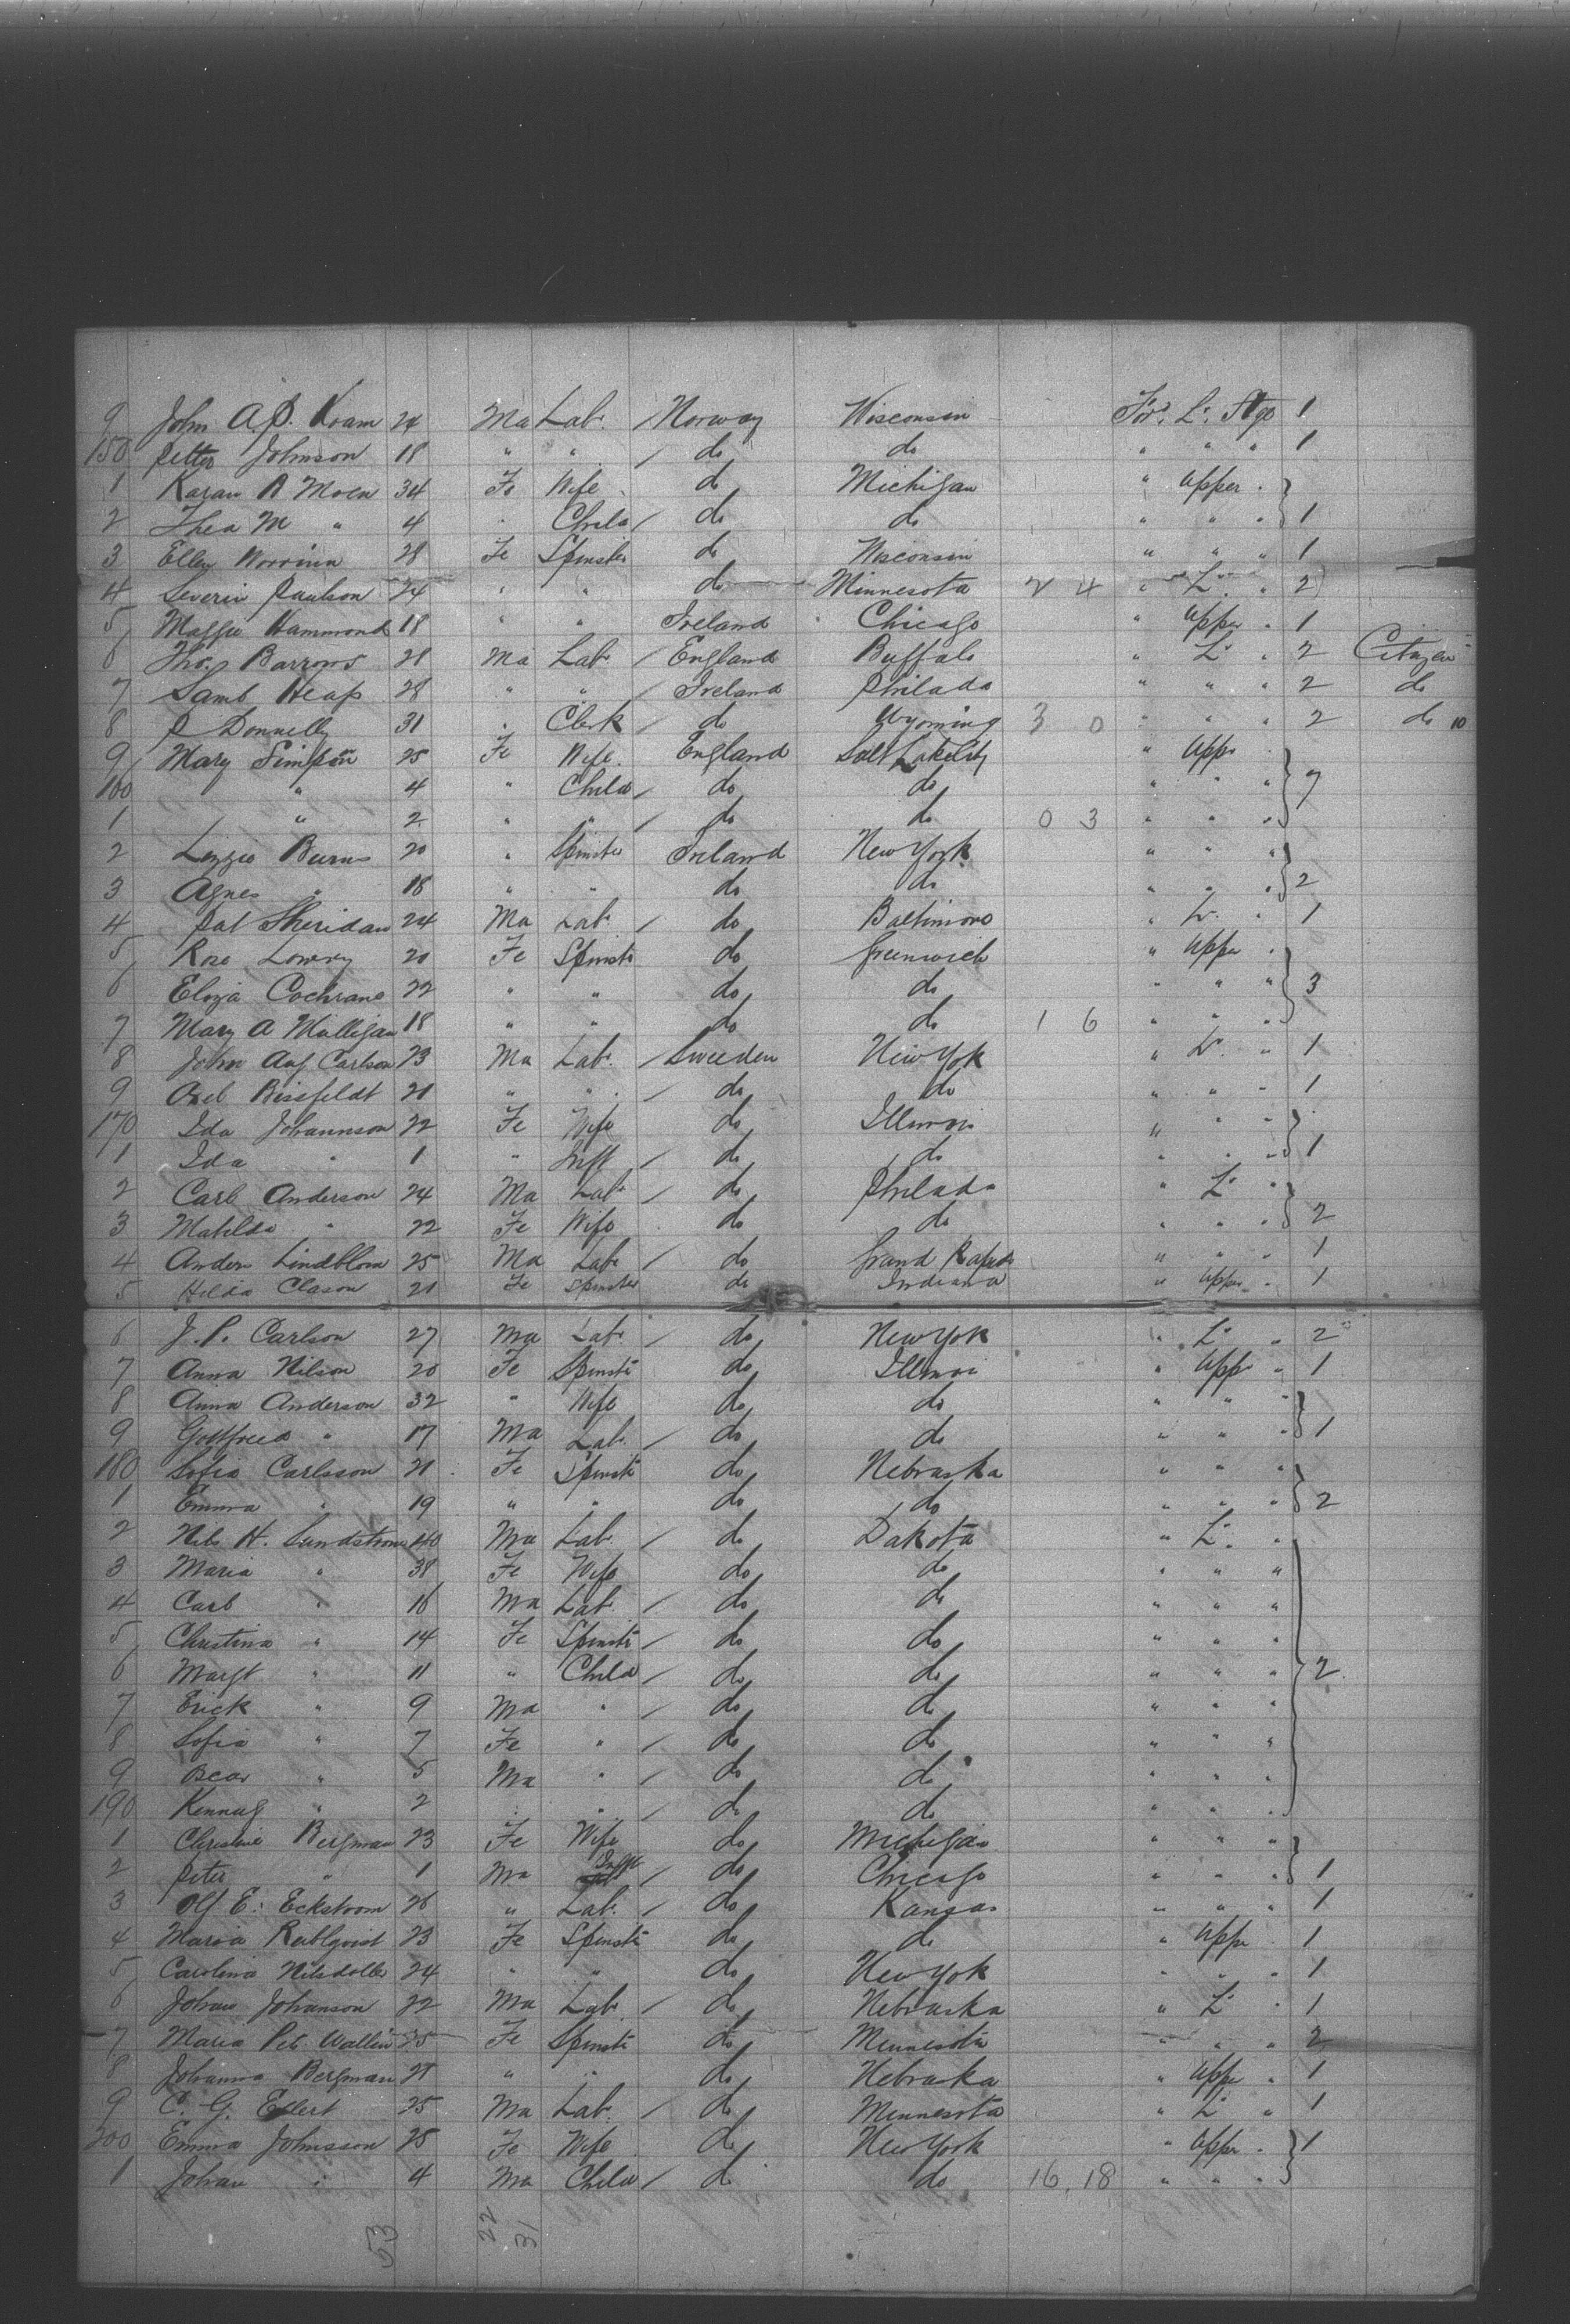 9 John A. P. Kvam 24 Ma Lab. / Norway Wisconsin For. L. Stge 1
150 Petter Johnson 18 " " / do do " " " 1
1 Karan B Moen 34 Fe Wife do Michigan " Upper "
2 Thea M " 4 " Child / do do " " " 1
3 Ellen 28 Fe Spinster do Wisconsin " " " 1
4 Severin Paulson 24 " " do Minnesota 2 4 " L. " 2
5 Maggie Hammond 18 " " Ireland Chicago " Upper " 1
6 Thos Barrows 28 Ma Lab. / England Buffalo " L. " 2 Citizen
7 Saml Heap 28 " " / Ireland Philada " " " 2 do
8 P Donnelly 31 " Clerk / do Wyoming 3 0 " " " 2 do 10
9 Mary Simpson 25 Fe Wife England Salt Lake City " Uppr "
160 " 4 " Child / do do " " " 7
1 " 2 " " / do do 0 3 " " "
2 Lizzie Burns 20 " Spinster Ireland New York " " "
3 Agnes " 18 " " do do " " " 2
4 Pat Sheridan 24 Ma Lab. / do Baltimore " L. " 1
5 Rose Lowry 20 Fe Spinstr do Greenwich " Upper "
6 Eliza Cochrane 22 " " do do " " " 3
7 Mary A Mulligan 18 " " do do 1 6 " " "
8 John Aug Carlson 23 Ma Lab. / Sweeden New York " L. " 1
9 Axel Bissfeldt 21 " " / do do " " " 1
170 Ida Johannson 22 Fe Wife do Illinois " " "
1 Ida " 1 " Inft / do do " " " 1
2 Carl Anderson 24 Ma Lab. / do Philada " L. "
3 Matilda " 22 Fe Wife do do " " " 2
4 Anders Lindblom 25 Ma Lab. / do Grand Rapids " " " 1
5 Hilda Clason 21 Fe Spinster do Indiana " Upper " 1
6 J. P. Carlson 27 Ma Lab. / do New York " L. " 2
7 Anna Nilson 20 Fe Spinstr do Illinois " Uppr " 1
8 Anna Anderson 32 " Wife do do " " "
9 Gottfried " 17 Ma Lab. / do do " " " 1
180 Sofia Carlsson 21 Fe Spinstr do Nebraska " " "
1 Emma " 19 " " do do " " " 2
2 Nils H. Sundstrom 40 Ma Lab. / do Dakota " L. "
3 Maria " 38 Fe Wife do do " " "
4 Carl " 16 Ma Lab. / do do " " "
5 Christina " 14 Fe Spinstr / do do " " "
6 Margt " 11 " Child / do do " " " 2
7 Erick " 9 Ma " / do do " " "
8 Sofia " 7 Fe " / do do " " "
9 " 5 Ma " / do do " " "
190 " 2 " " / do do " " "
1 Christine Bergman 23 Fe Wife do Michigan " " "
2 Peter " 1 Ma Inft / do Chicago " " " 1
3 Olf E. Eckstrom 26 " Lab. / do Kansas " " " 1
4 Maria 23 Fe Spinstr do do " Uppr 1
5 Carolina 24 " " do New York " " " 1
6 Johan Johanson 22 Ma Lab. / do Nebraska " L. " 1
7 Maria Pet. Wallin 25 Fe Spinstr do Minnesota " " " 2
8 Johanna Bergman 21 " " do Nebraska " Uppr " 1
9 C. G. Ellert 25 Ma Lab. / do Minnesota " L. " 1
200 Emma Johnsson 25 Fe Wife do New York " Upper " 1
1 Johan " 4 Ma Child / do do 16, 18 " " "
53 22
31